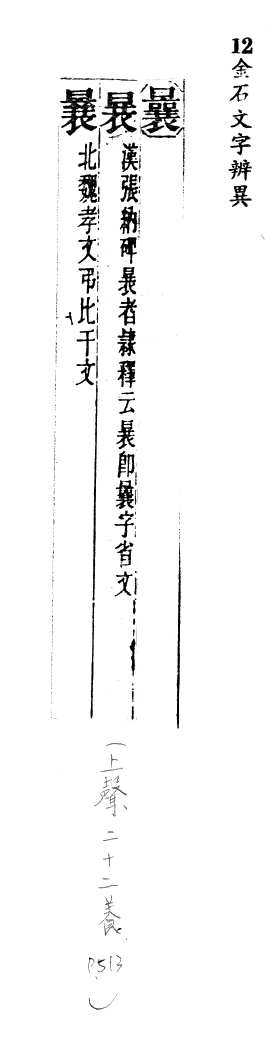 12金石文字辨異
曩
漢張納碑者隸釋云即曩字省文
北魏孝文弔比干文
(上聲二十二養 P513)